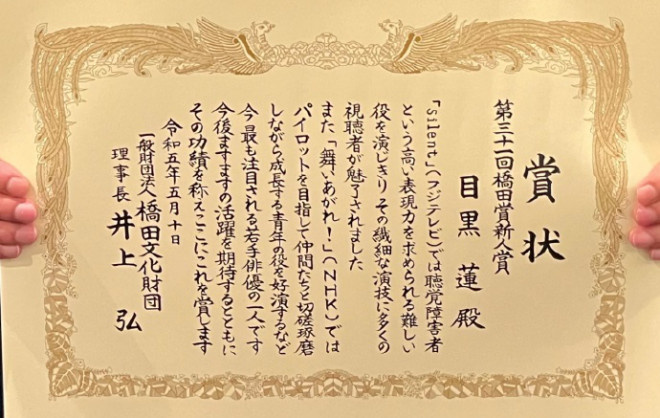 賞状
第三十一回橋田賞新人賞
目黒蓮殿
「silent」(フジテレビ)では聴覚障害者
という高い表現力を求められる難しい
役を演じきり その繊細な演技に多くの
視聴者が魅了されました
また「舞いあがれ!」(NHK)では
パイロットを目指して仲間たちと切磋琢磨
しながら成長する青年の役を好演するなど
今最も注目される若手俳優の一人です
今後ますますの活躍を期待するとともに
その功績を称えここにこれを賞します
令和五年五月十日
一般財団法人 橋田文化財団
理事長 井上 弘